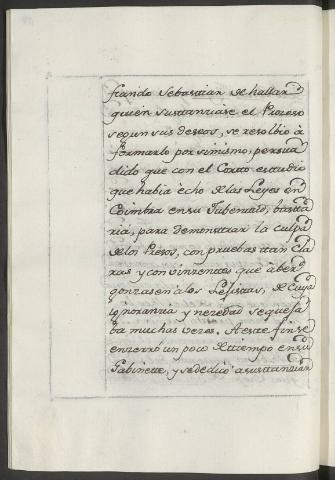 fiando Sebastian de hallar
quien sustanziase el Proceso
segun sus deseos, se resolbio à
formarlo por si mismo, persua
dido que con el Corto estudio
que habia echo de las Leyes en
Coimbra en su Jubentud, basta
ria, para demonstrar la culpa
de los Presos, con pruebas tan cla
ras y convinzentes que aber
gonzasen a los Lejistas, de cuya
ignoranzia y nezedad se queja
ba muchas vezes. A este fin se
enzerró un poco de tiempo en su
Gabinette, y se dedicó a sustanziar